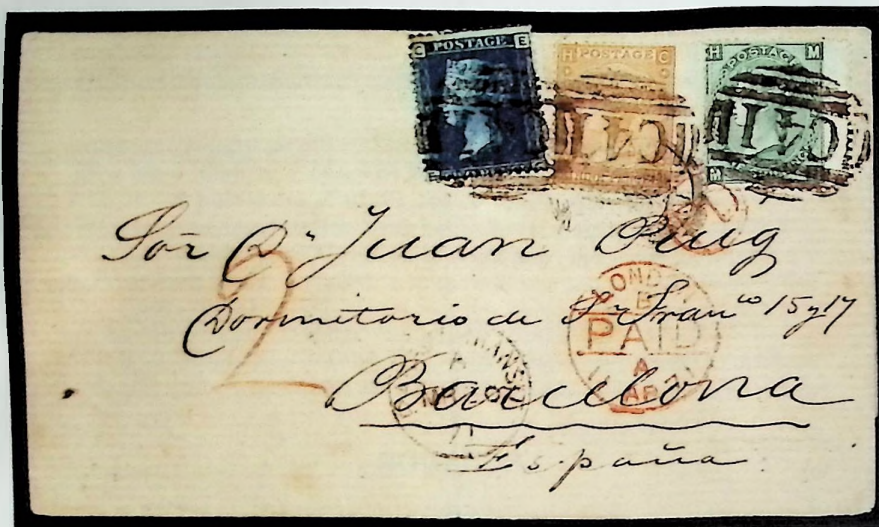 C POSTAGE E
H POSTAGE C
H POSTAGE M
C41
C41
Sor Dn Juan Puig
Dormitorio de Sn Franco 15 y 17
Barcelona
España
2
LONDON
PAID
A
AP